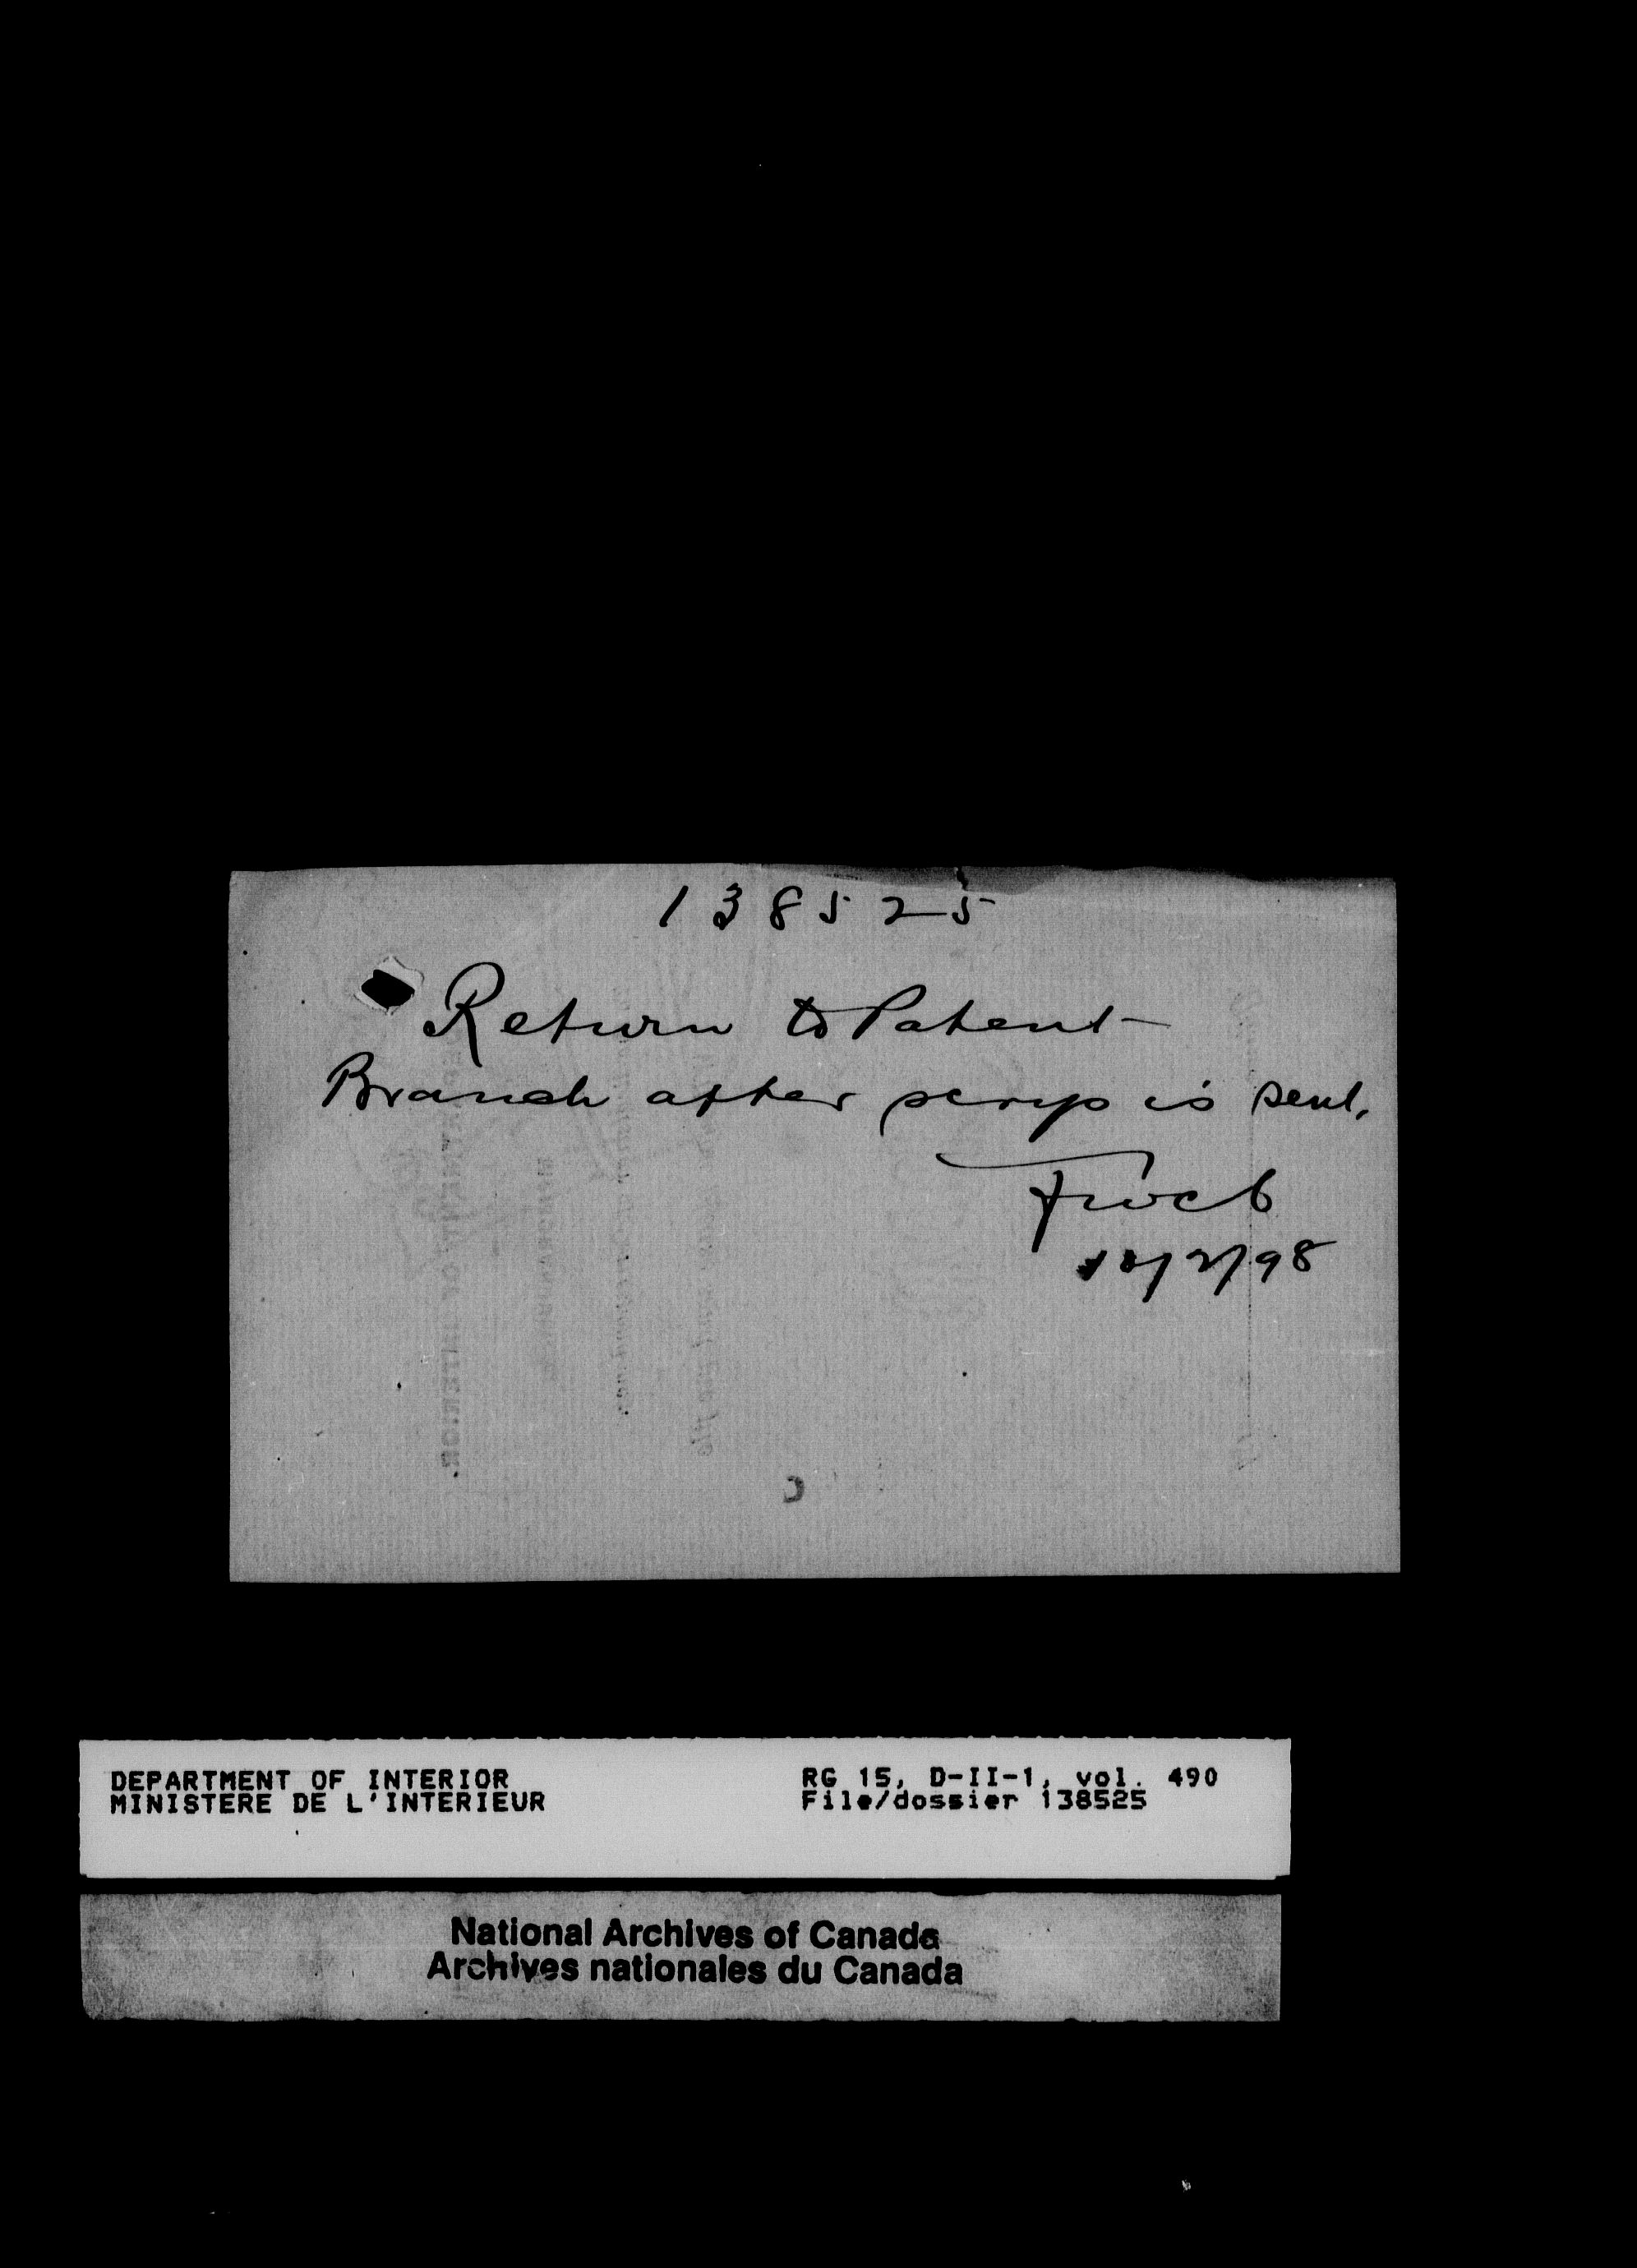 138525
Return to Patent
Branch after scrip is sent.
10/2/98
DEPARTMENT OF INTERIOR
MINISTERE DE L'INTERIEUR
RG 15, D-II-1, vol. 490
File/dossier 138525
National Archives of Canada
Archives nationales du Canada